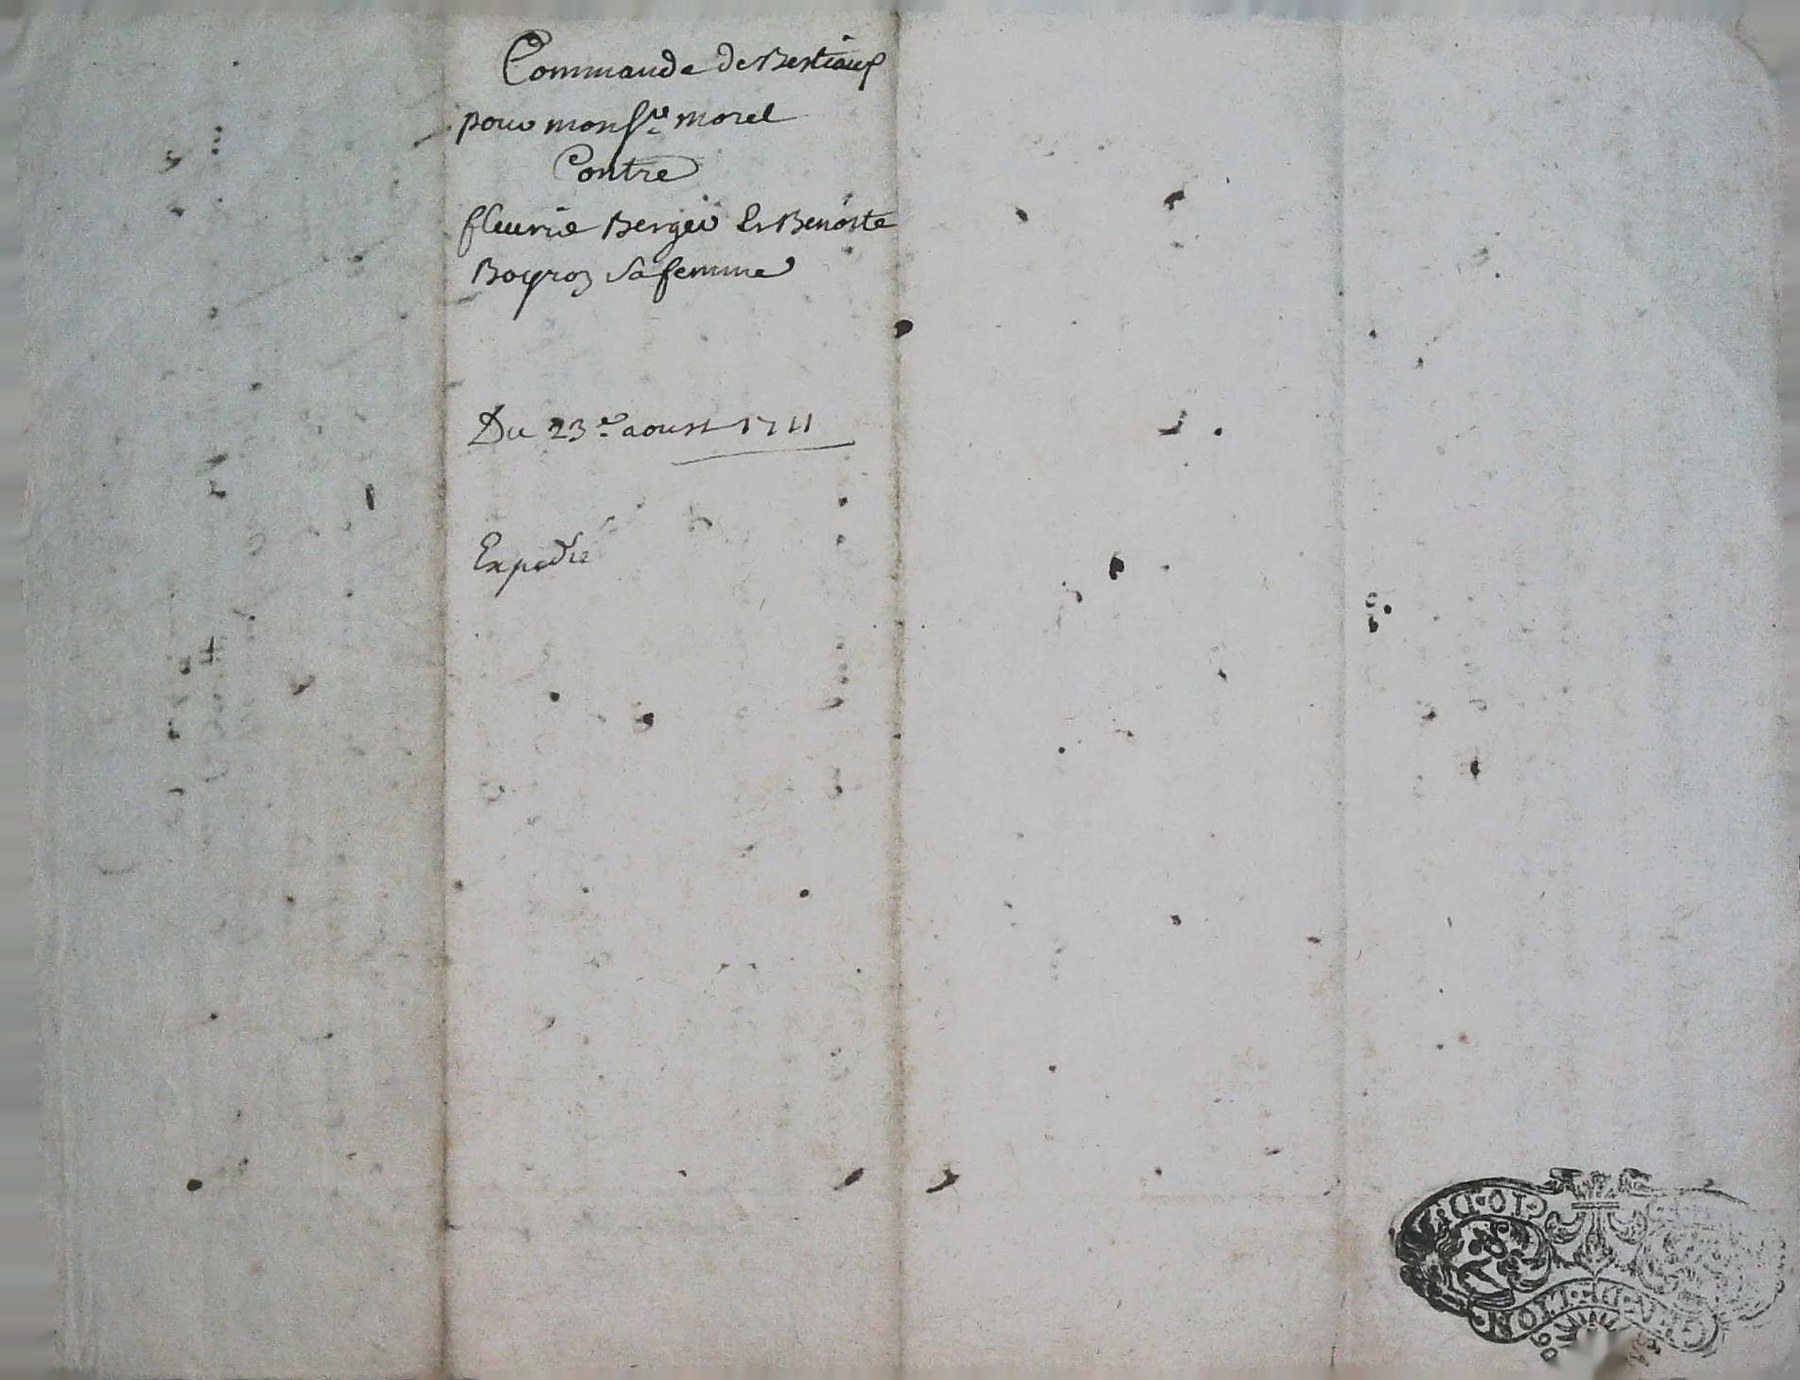 Commande de Bestiaux
pour monsr morel
Contre
fleurie Berger Et Benoite
Boyron sa femme
Du 23e aoust 1711
Expedié